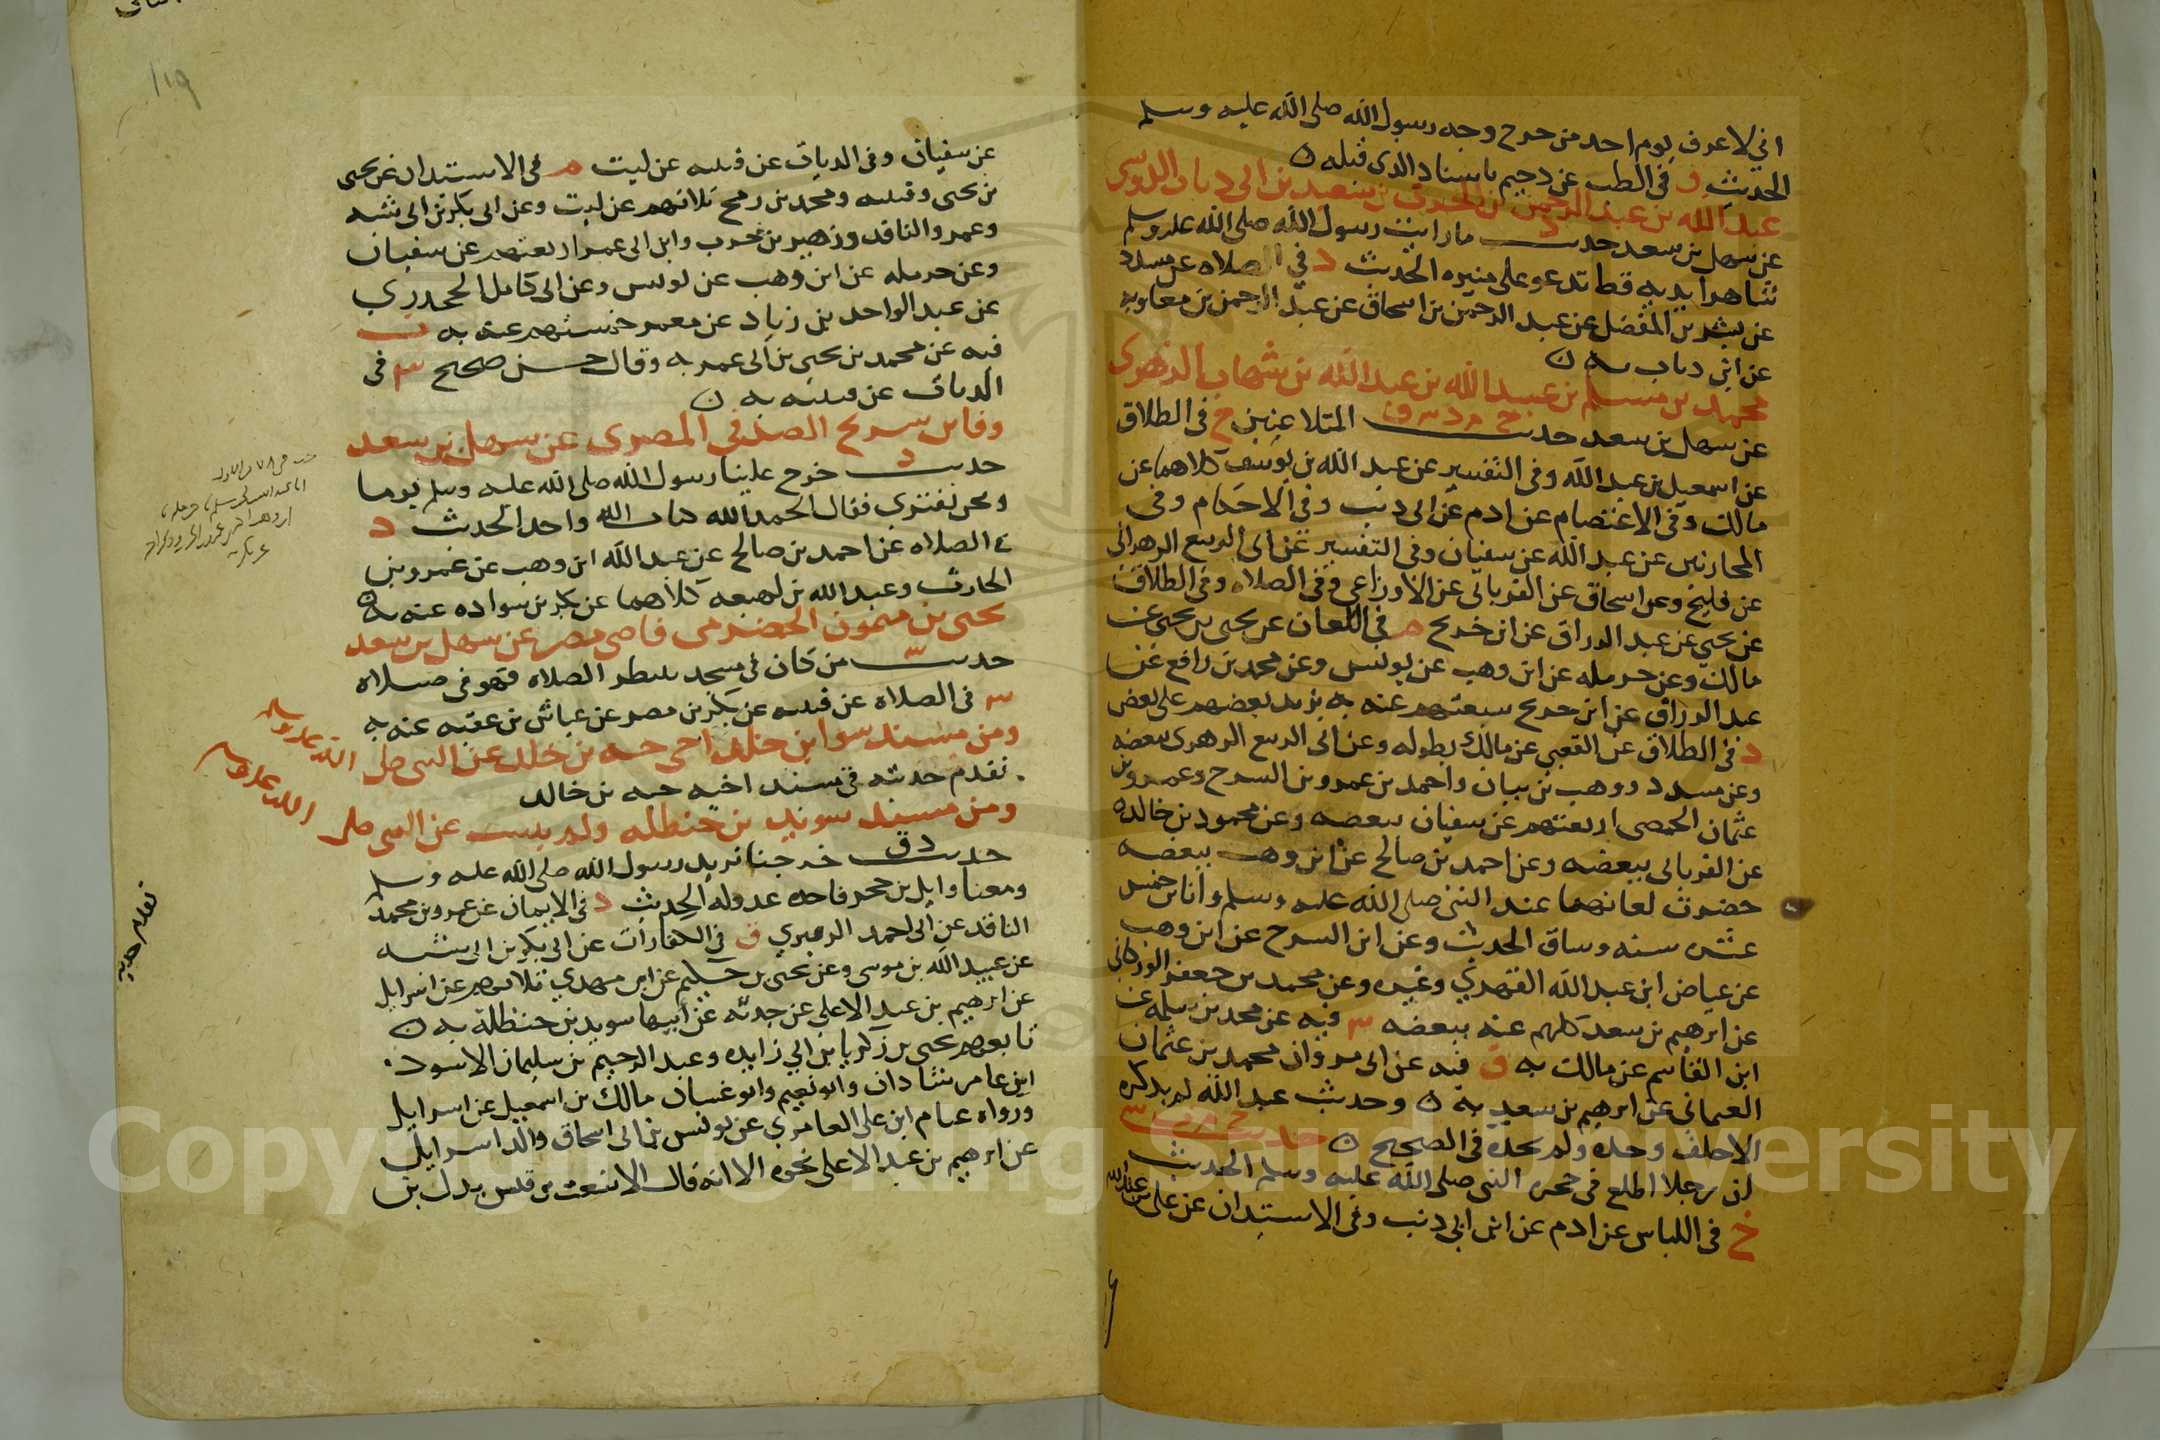 اني لاعرف يوم احد من جرح وجه رسول الله صلى الله عليه وسلم
الحديث ق في الطب عن دحيم باسناد الذي قبله ن
عبد الله بن عبد الرحمن بن الحرث بن سعد بن ابي دباب الدوسي
عن سهل بن سعد حديث مارايت رسول الله صلى الله عليه وسلم
شاهرا يديه قط تدعو على منبره الحديث د في الصلاه عن مسدد
عن بشر بن المفضل عن عبد الرحمن بن اسحاق عن عبد الرحمن بن معاويه
عن ابن دباب به ن
محمد بن مسلم بن عبيد الله بن عبد الله بن شهاب الزهري
عن سهل بن سعد حديث خ م د س ق المتلاعنين خ في الطلاق
عن اسمعيل بن عبد الله وفي التفسير عن عبد الله بن يوسف كلاهما عن
مالك وفي الاعتصام عن ادم عن ابن ابي ذيب وفي الاحكام وفي
المحاربين عن عبد الله عن سفيان وفي التفسير عن ابي الربيع الزهراني
عن فليح وعن اسحاق عن الفريابي عن الاوزاعي وفي الصلاه وفي الطلاق
عن يحيى عن عبد الرزاق عن ابن جريج م في اللعان عن يحيى بن يحيى عن
مالك وعن حرمله عن ابن وهب عن يونس وعن محمد بن رافع عن
عبد الرزاق عن ابن جريج سبعتهم عنه به يزيد بعضهم على بعض
د في الطلاق عن القعنبي عن مالك بطوله وعن ابي الربيع الزهري ببعضه
وعن مسدد ووهب بن بيان واحمد بن عمرو بن السرح وعمرو بن
عثمان الحمصي اربعتهم عن سفيان ببعضه وعن محمود بن خالد
عن الفريابي ببعضه وعن احمد بن صالح عن ابن وهب ببعضه
حضرت لعانهما عند النبي صلى الله عليه وسلم وانا بن خمس
عشره سنه وساق الحديث وعن ابن السرح عن ابن وهب
عن عياض ابن عبد الله الفهري وغيره وعن محمد بن جعفر الوركاني
عن ابرهيم بن سعد كلهم عنه ببعضه س فيه عن محمد بن سلمه عن
ابن القاسم عن مالك به ق فيه عن ابي مروان محمد بن عثمان
العثماني عن ابرهيم بن سعد به ن وحديث عبد الله لم يذكره
الا خلف وحده ولم نجده في الصحيح ن حديث خ م ت س
ان رجلا اطلع في جحر النبي صلى الله عليه وسلم الحديث
خ في اللباس عن ادم عن ابن ابي ذيب وفي الاستيذان عن علي بن عبد الله
عن سفيان وفي الديات عن قتيبه عن ليث م في الاستيذان عن يحيى
بن يحيى وقتيبه ومحمد بن رمح ثلاثتهم عن ليث وعن ابي بكر بن ابي شيبه
وعمرو الناقد وزهير بن حرب وابن ابي عمر اربعتهم عن سفيان
وعن حرمله عن ابن وهب عن يونس وعن ابي كامل الجحدري
عن عبد الواحد بن زياد عن معمر خمستهم عنه به ت
فيه عن محمد بن يحيى بن ابي عمر به وقال حسن صحيح س في
الديات عن قتيبه به ن
وفا بن سريح الصدفي المصري عن سهل بن سعد
حديث د خرج علينا رسول الله صلى الله عليه وسلم يوما
ونحن نقتري فقال الحمد لله كتاب الله واحد الحديث د
في الصلاه عن احمد بن صالح عن عبد الله ابن وهب عن عمرو بن
الحارث وعبد الله بن لهيعه كلاهما عن بكر بن سواده عنه به
يحيى بن ميمون الحضرمي قاضي مصر عن سهل بن سعد
حديث س من كان في مسجد ينتظر الصلاه فهو في صلاه
س في الصلاه عن قتيبه عن بكر بن مضر عن عياش بن عقبه عنه به
ومن مسند سوا ابن خلد اخي حبه بن خلد عن النبي صلى الله عليه وسلم
تقدم حديثه في مسند اخيه حبه بن خالد
ومن مسند سويد بن حنظله ولم ينسب عن النبي صلى الله عليه وسلم
حديث د ق خرجنا نريد رسول الله صلى الله عليه وسلم
ومعنا وايل بن حجر فاخذه عدو له الحديث د في الايمان عن عمرو بن محمد
الناقد عن ابي احمد الزبيري ق في الكفارات عن ابي بكر بن ابي شيبه
عن عبيد الله بن موسى وعن يحيى بن حكيم عن ابن مهدي ثلاثتهم عن اسرايل
عن ابرهيم بن عبد الاعلى عن جدته عن ابيها سويد بن حنظلة به ن
تابعهم يحيى بن زكريا بن ابي زايده وعبد الرحيم بن سليمان الاسود
ابن عامر شاذان وابو نعيم وابو غسان مالك بن اسمعيل عن اسرايل
ورواه عثام ابن علي العامري عن يونس بن ابي اسحاق والد اسرايل
عن ابرهيم بن عبد الاعلى نحوه الا انه قال الاشعث بن قيس بدل بن